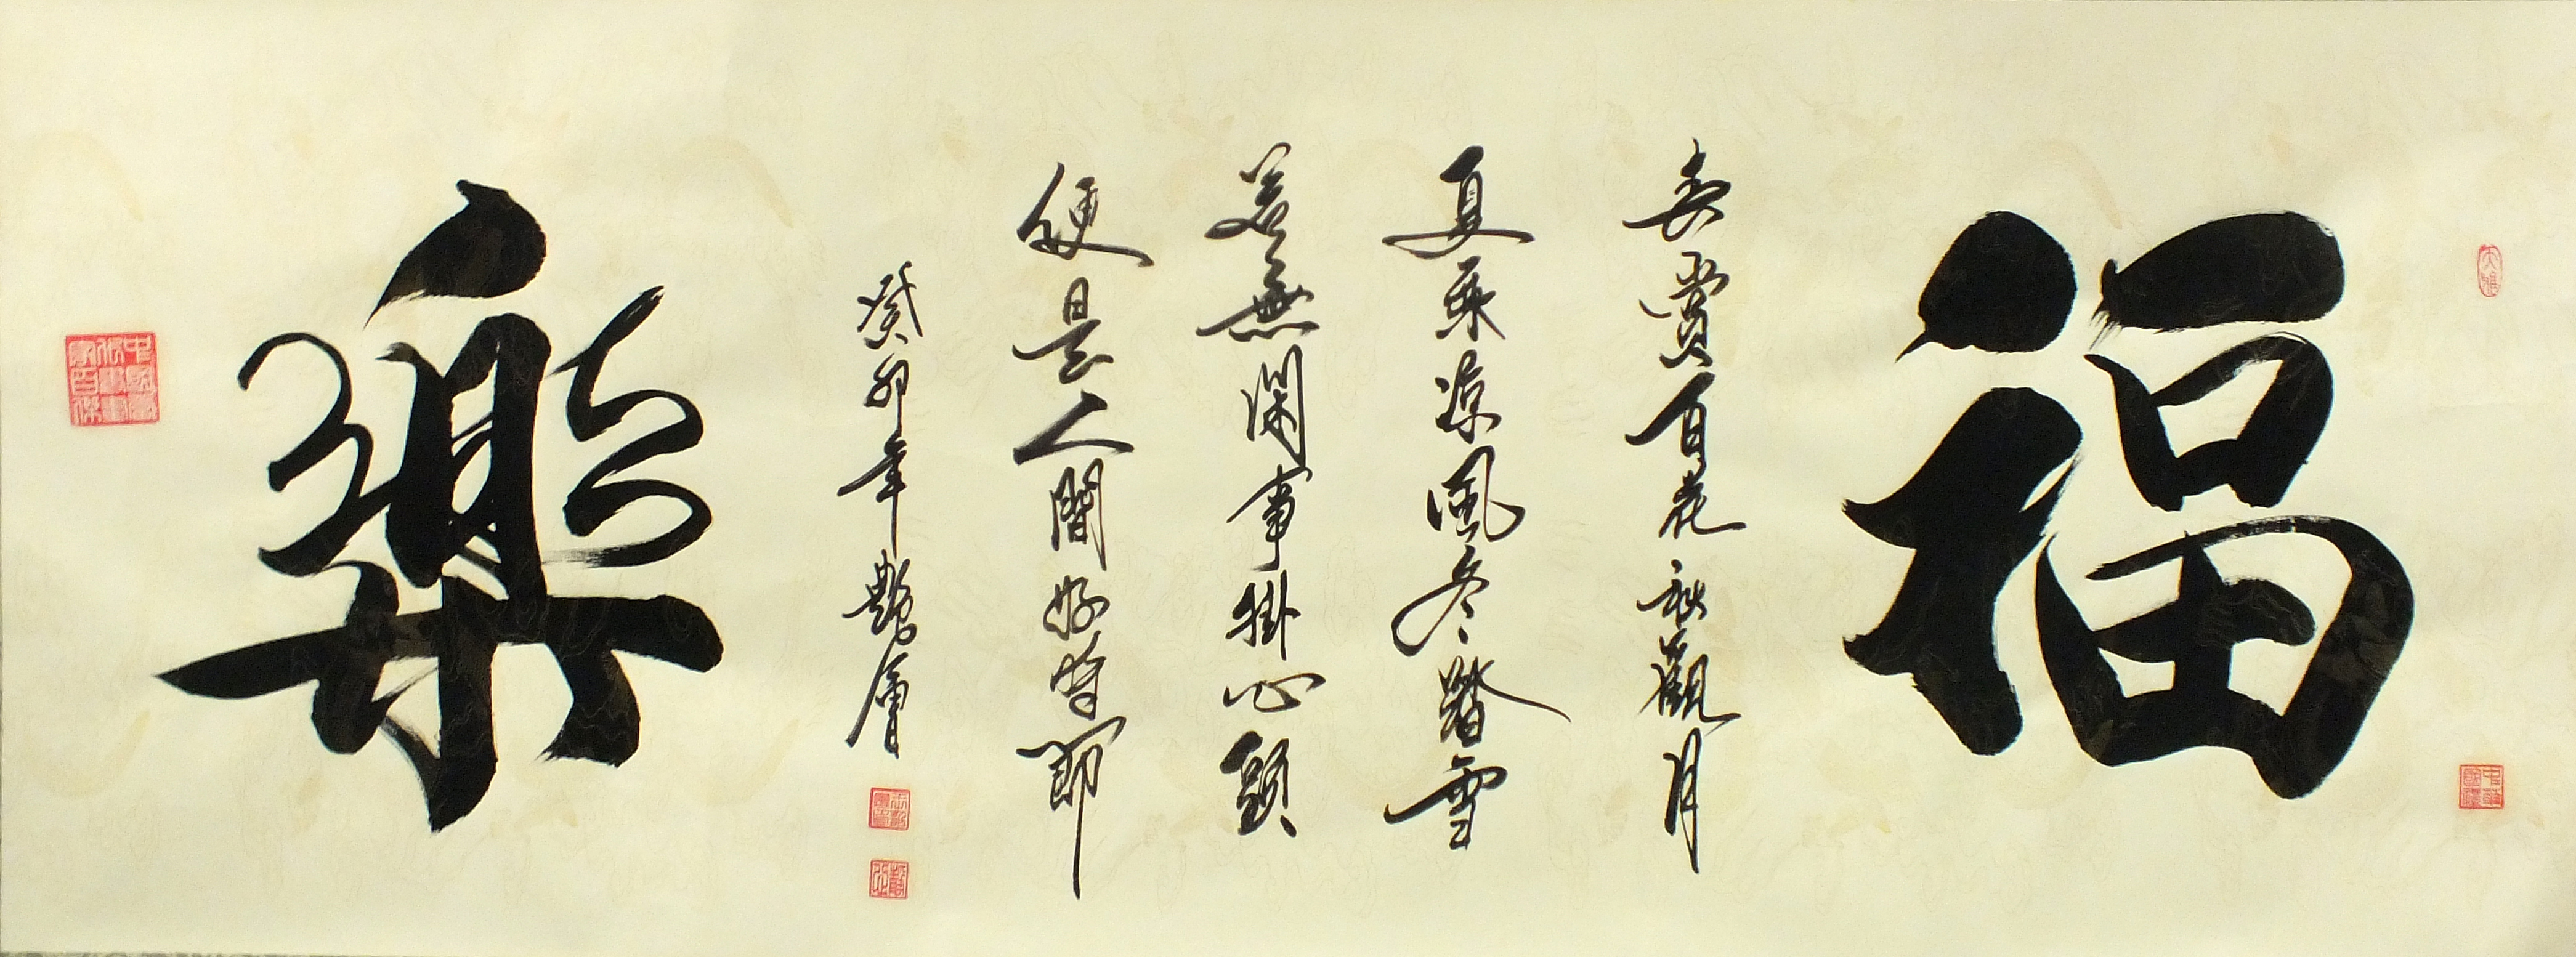 福
春賞百花秋觀月
夏乘凉風冬踏雪
若無閑事掛心頭
便是人間好時節
癸卯年艷會
樂
大雅